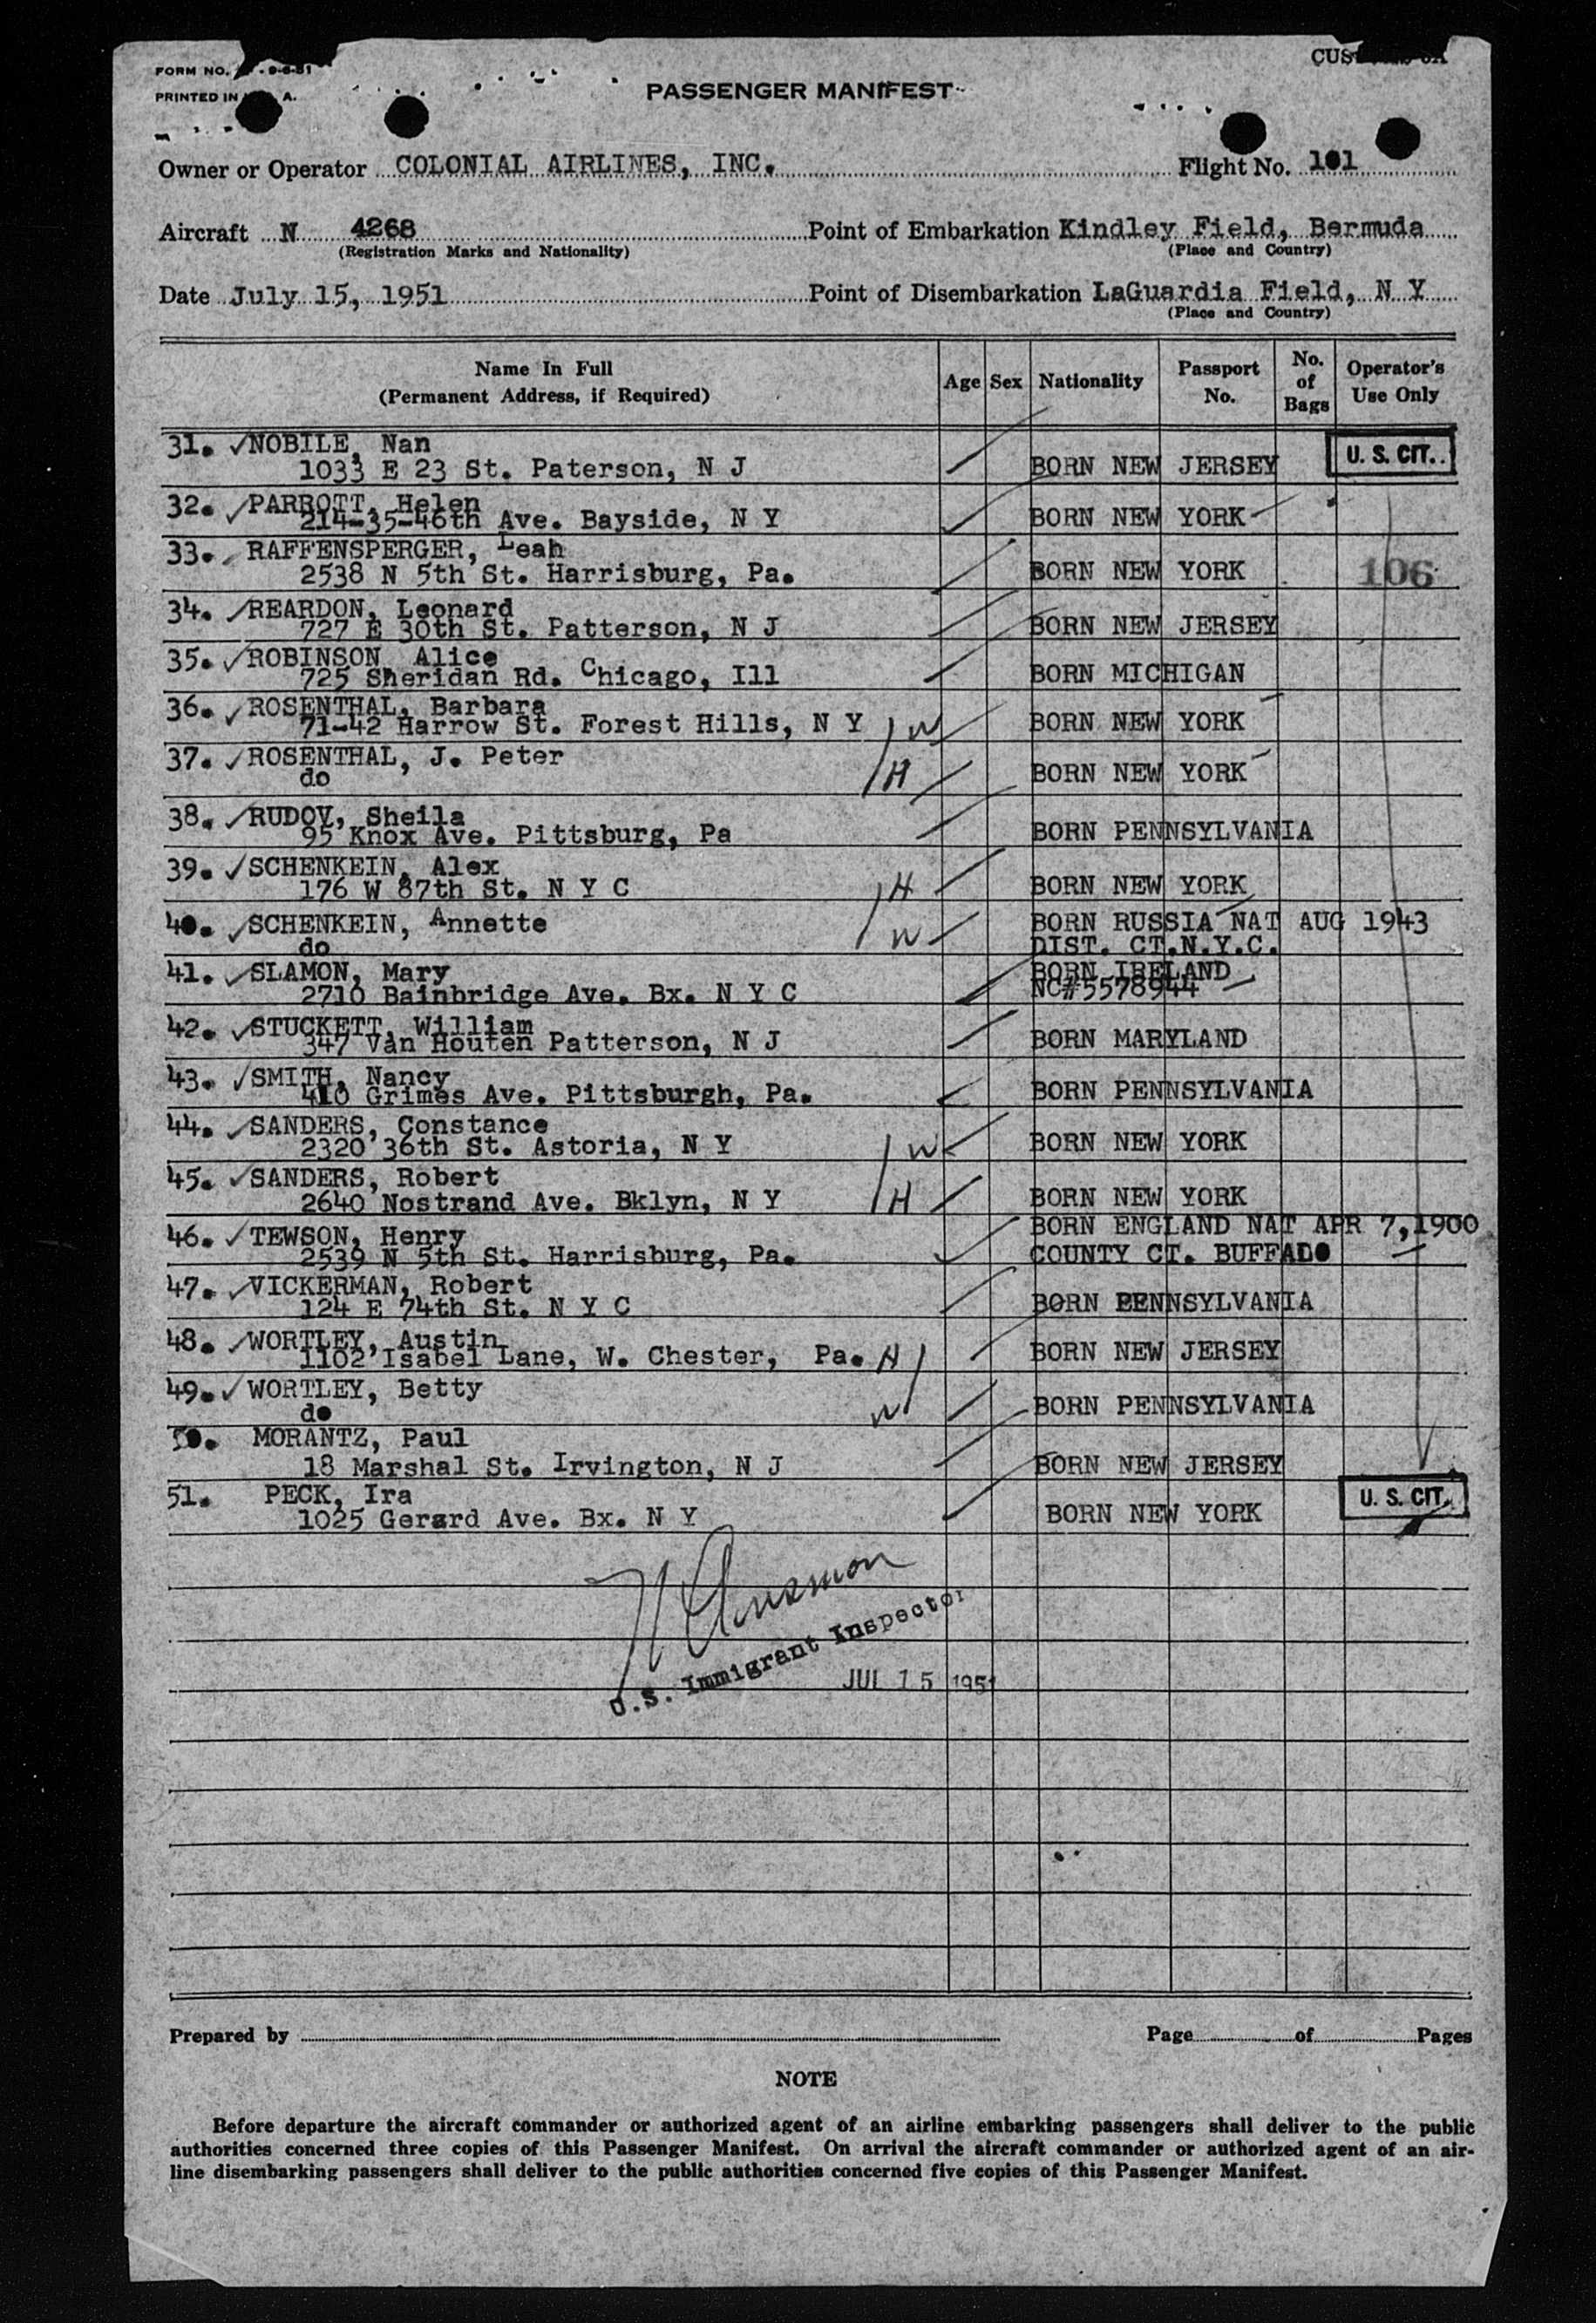 FORM NO. 9-6-51
CUS
PRINTED IN U. S. A.
PASSENGER MANIFEST
Owner or Operator COLONIAL AIRLINES, INC. Flight No. 101
Aircraft N 4268 Point of Embarkation Kindley Field, Bermuda
(Registration Marks and Nationality) (Place and Country)
Date July 15, 1951 Point of Disembarkation LaGuardia Field, N Y
(Place and Country)
Name In Full (Permanent Address, if Required) Age Sex Nationality Passport No. No. of Bags Operator's Use Only
31. ✓NOBILE, Nan U. S. CIT.
1033 E 23 St. Paterson, N J BORN NEW JERSEY
32. ✓PARROTT, Helen
214-35-46th Ave. Bayside, N Y BORN NEW YORK
33. RAFFENSPERGER, Leah
2538 N 5th St. Harrisburg, Pa. BORN NEW YORK 106
34. ✓REARDON, Leonard
727 E 30th St. Patterson, N J BORN NEW JERSEY
35. ✓ROBINSON, Alice
725 Sheridan Rd. Chicago, Ill BORN MICHIGAN
36. ✓ROSENTHAL, Barbara
71-42 Harrow St. Forest Hills, N Y W BORN NEW YORK
37. ✓ROSENTHAL, J. Peter
do H BORN NEW YORK
38. ✓RUDOV, Sheila
95 Knox Ave. Pittsburg, Pa BORN PENNSYLVANIA
39. ✓SCHENKEIN, Alex
176 W 87th St. N Y C H BORN NEW YORK
40. ✓SCHENKEIN, Annette BORN RUSSIA NAT AUG 1943
do W DIST. CT.N.Y.C.
41. ✓SLAMON, Mary BORN IRELAND
2710 Bainbridge Ave. Bx. N Y C NC#5578944
42. ✓STUCKETT, William
347 Van Houten Patterson, N J BORN MARYLAND
43. ✓SMITH, Nancy
410 Grimes Ave. Pittsburgh, Pa. BORN PENNSYLVANIA
44. ✓SANDERS, Constance
2320 36th St. Astoria, N Y W BORN NEW YORK
45. ✓SANDERS, Robert
2640 Nostrand Ave. Bklyn, N Y H BORN NEW YORK
46. ✓TEWSON, Henry BORN ENGLAND NAT APR 7,1900
2539 N 5th St. Harrisburg, Pa. COUNTY CT. BUFFALO
47. ✓VICKERMAN, Robert
124 E 74th St. N Y C BORN PENNSYLVANIA
48. ✓WORTLEY, Austin
1102 Isabel Lane, W. Chester, Pa. H BORN NEW JERSEY
49. ✓WORTLEY, Betty
do W BORN PENNSYLVANIA
50. MORANTZ, Paul
18 Marshal St. Irvington, N J BORN NEW JERSEY
51. PECK, Ira U. S. CIT.
1025 Gerard Ave. Bx. N Y BORN NEW YORK
U.S. Immigrant Inspector
JUL 15 1951
Prepared by Page of Pages
NOTE
Before departure the aircraft commander or authorized agent of an airline embarking passengers shall deliver to the public
authorities concerned three copies of this Passenger Manifest. On arrival the aircraft commander or authorized agent of an air-
line disembarking passengers shall deliver to the public authorities concerned five copies of this Passenger Manifest.